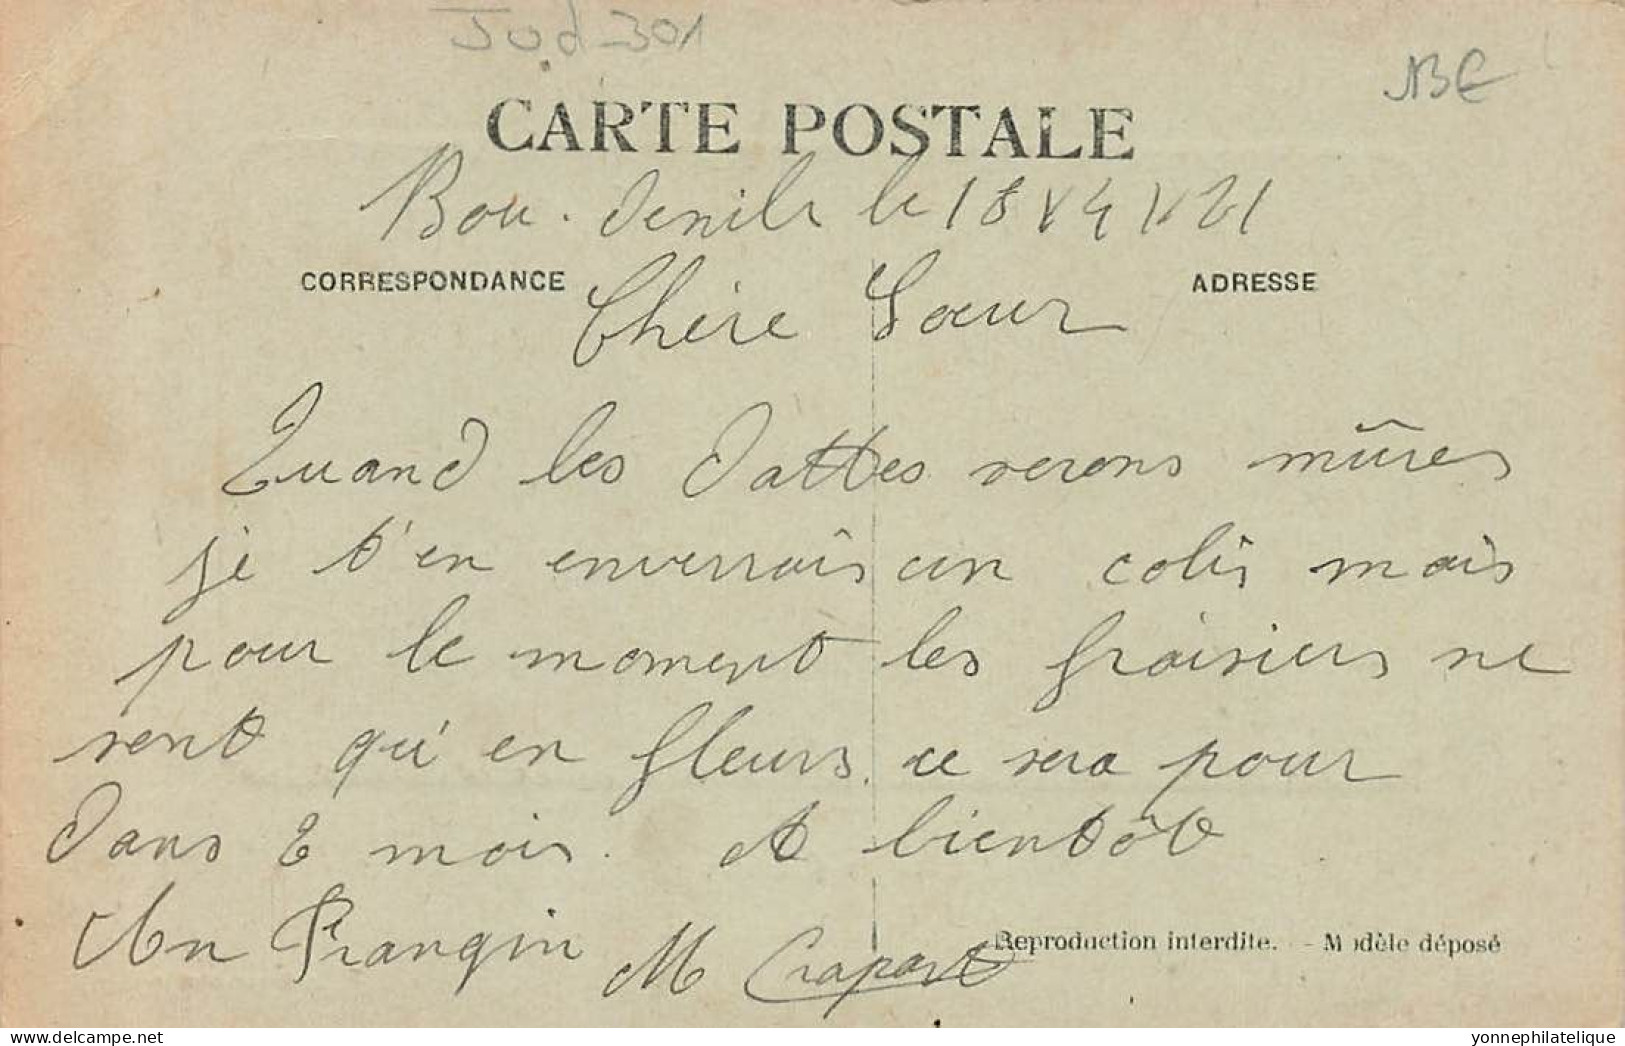 Jud-301
CARTE POSTALE
Bou. Denib le 18 4 21
CORRESPONDANCE
ADRESSE
Chère Sœur
Quand les Dattes serons mûres
je t'en enverrais un colis mais
pour le moment les fraisiers ne
sont qu'en fleurs. ce sera pour
Dans 2 mois. A bientôt
Un Frangin M Crapart
Reproduction interdite. - Modèle déposé
© Delcampe.net
yonnephilatelique